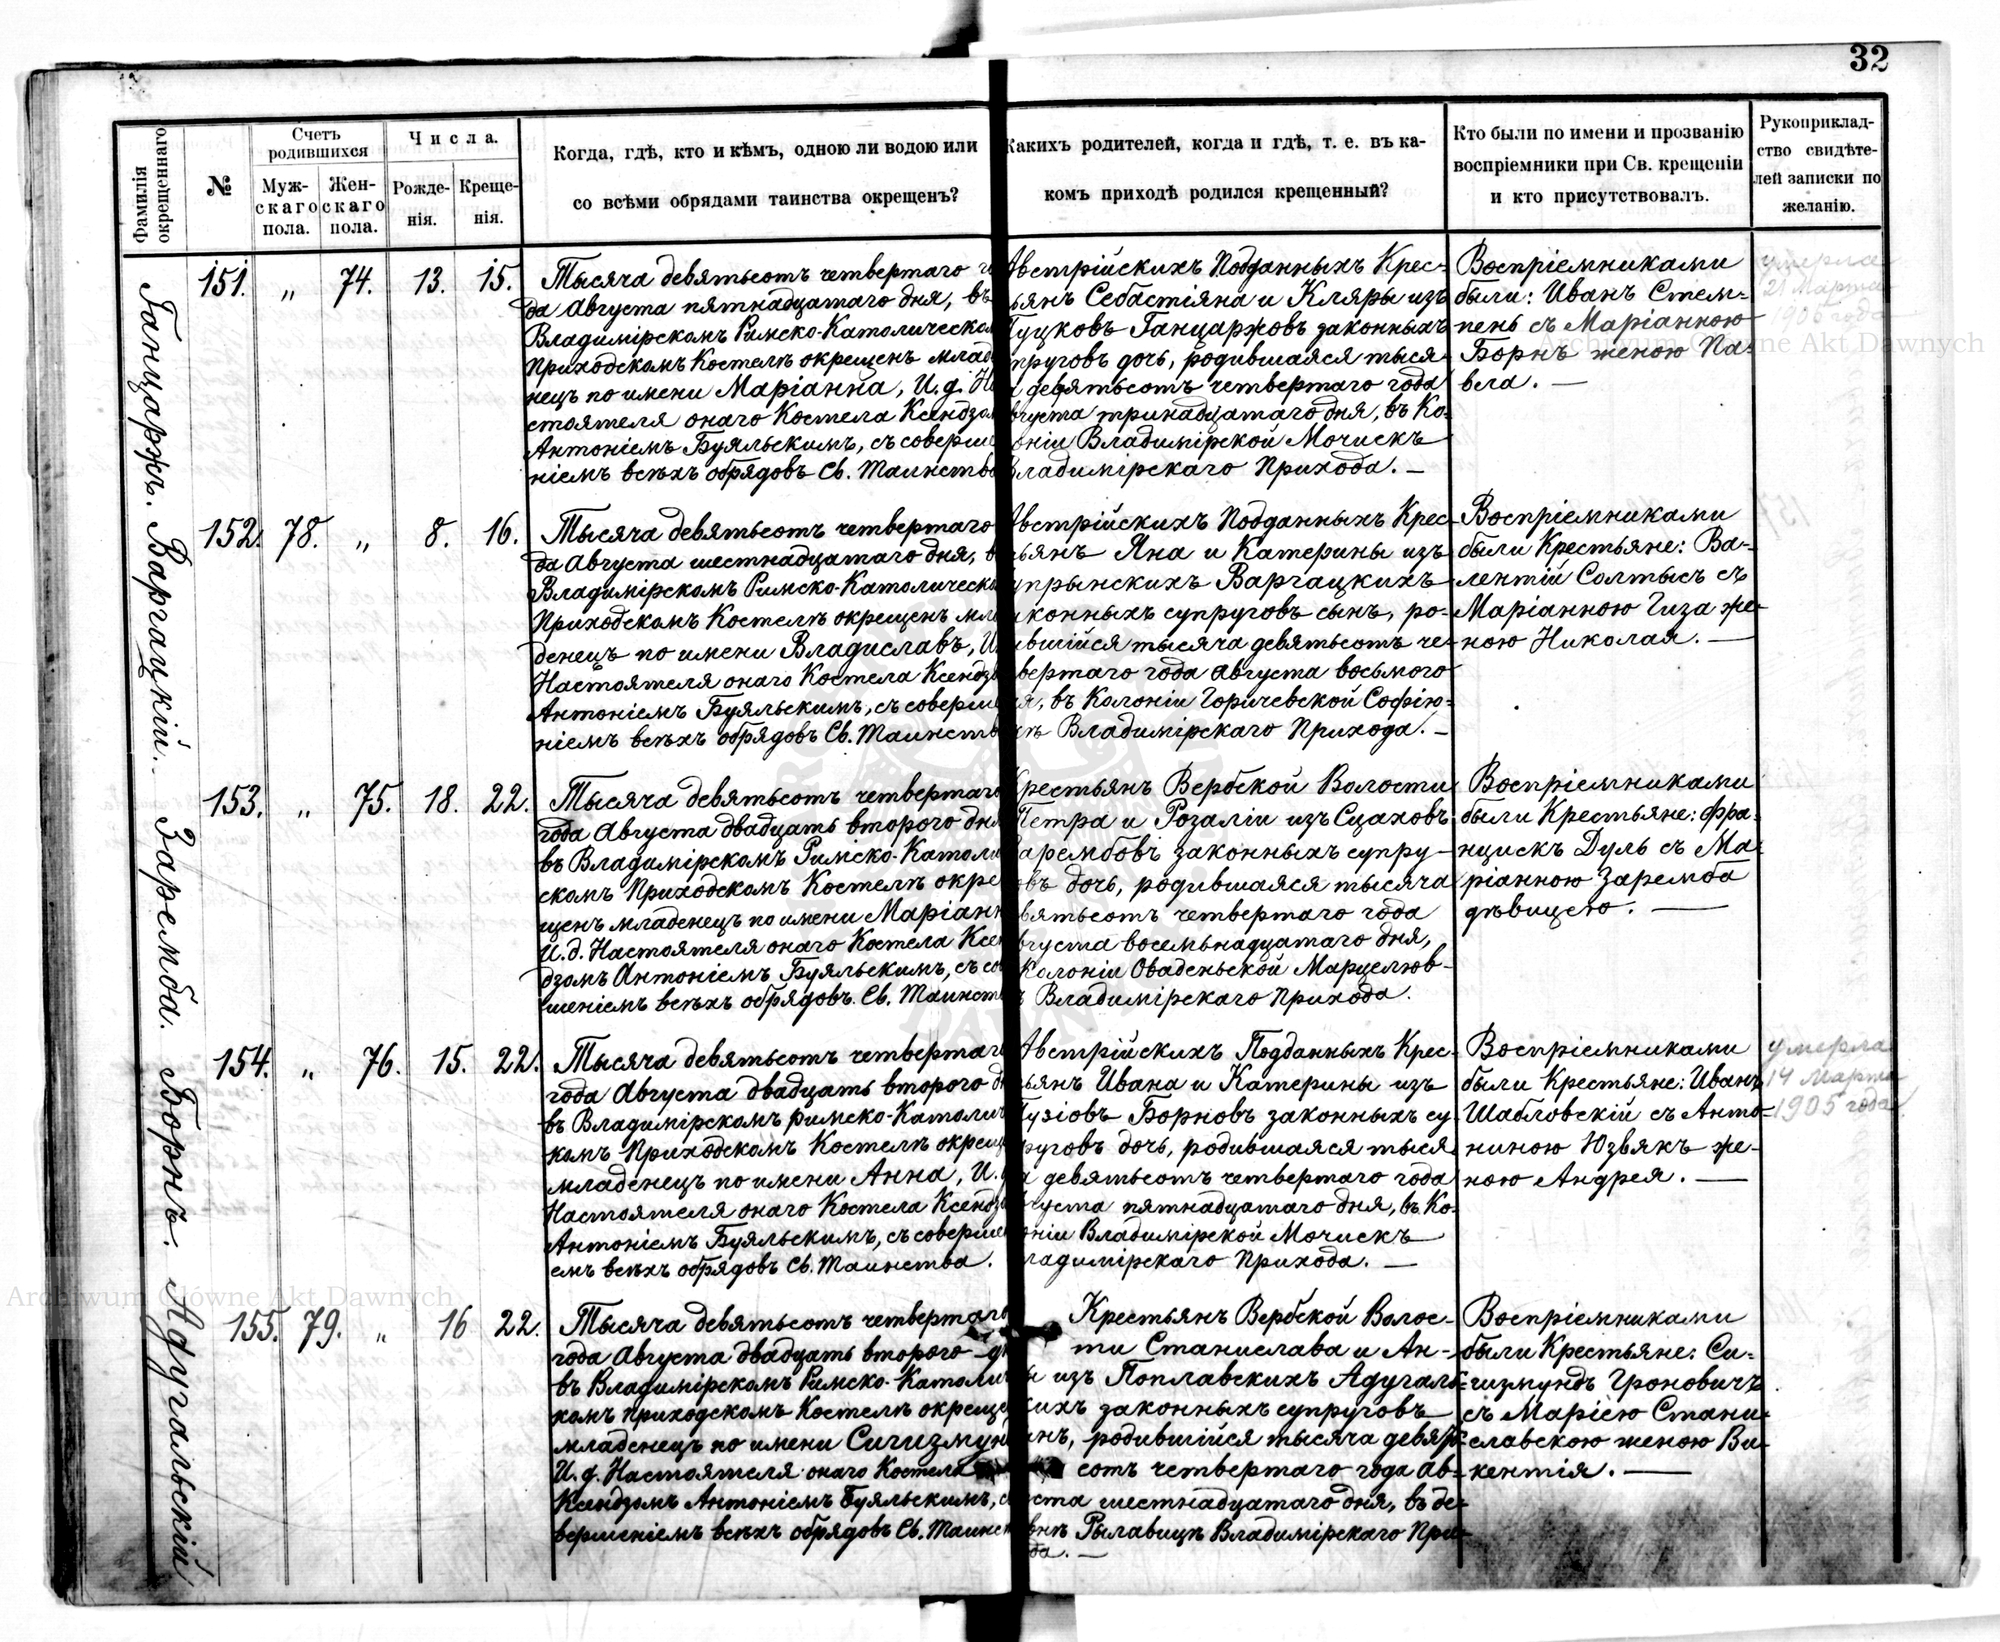 32
Фамилія окрещеннаго.
№
Счетъ родившихся
Муж-
скаго
пола.
Жен-
скаго
пола.
Числа.
Рожде-
нія.
Креще-
нія.
Когда, гдѣ, кто и кѣмъ, одною ли водою или
со всѣми обрядами таинства окрещенъ?
Какихъ родителей, когда и гдѣ, т. е. въ ка-
комъ приходѣ родился крещенный?
Кто были по имени и прозванію
воспріемники при Св. крещеніи
и кто присутствовалъ.
Рукоприклад-
ство свидѣте-
лей записки по
желанію.
Ганцаржъ.
151. „ 74. 13. 15.
Тысяча девятьсотъ четвертаго
да Августа пятнадцатаго дня, въ
Владимірскомъ Римско-Католическо
Приходскомъ Костелѣ окрещенъ млад
нецъ по имени Маріанна, И. д. На
стоятеля онаго Костела Ксендзом
Антоніемъ Буяльскимъ, съ соверше
ніемъ всѣхъ обрядовъ Св. Таинства
Австрійскихъ Подданныхъ Крес-
ьянъ Себастіяна и Кляры изъ
Гуцковъ Ганцаржовъ законныхъ
пруговъ дочь, родившаяся тыся-
а девятьсотъ четвертаго года
вгуста тринадцатаго дня, въ Ко-
оніи Владимірской Мочискъ
Владимірскаго Прихода. —
Воспріемниками
были: Иванъ Стем-
пень съ Маріанною
Борнъ женою Па-
вла. —
умерла
21 Марта
1906 года
Варгацкій.
152. 78. „ 8. 16.
Тысяча девятьсотъ четвертаго
да Августа шестнадцатаго дня, в
Владимірскомъ Римско-Католическо
Приходскомъ Костелѣ окрещенъ мла
денецъ по имени Владиславъ, И.
Настоятеля онаго Костела Ксендзо
Антоніемъ Буяльскимъ, съ соверше
ніемъ всѣхъ обрядовъ Св. Таинств
Австрійскихъ Подданныхъ Крес-
ьянъ Яна и Катерины изъ
упрынскихъ Варгацкихъ
аконныхъ супруговъ сынъ, ро-
ившійся тысяча девятьсотъ че-
вертаго года августа восьмого
ня, въ Колоніи Горичевской Софію-
кѣ Владимірскаго Прихода. —
Воспріемниками
были Крестьяне: Ва-
лентій Солтысъ съ
Маріанною Гиза же-
ною Николая. —
Заремба.
153. „ 75. 18. 22.
Тысяча девятьсотъ четвертаго
года Августа двадцать второго дня
въ Владимірскомъ Римско-Католи
скомъ Приходскомъ Костелѣ окре
щенъ младенецъ по имени Маріанн
И. д. Настоятеля онаго Костела Ксен
дзомъ Антоніемъ Буяльскимъ, съ со
шеніемъ всѣхъ обрядовъ Св. Таинст
Крестьянъ Вербской Волости
Петра и Розаліи изъ Сцаховъ
Зарембовъ законныхъ супру-
овъ дочь, родившаяся тысяча
вятьсотъ четвертаго года
вгуста восемьнадцатаго дня,
Колоніи Оваденьской Марцелюв-
ѣ Владимірскаго Прихода.
Воспріемниками
были Крестьяне: Фра-
нцискъ Дуль съ Ма-
ріанною Заремба
дѣвицею. —
Борнъ.
154. „ 76. 15. 22.
Тысяча девятьсотъ четвертаго
года Августа двадцать второго д
въ Владимірскомъ Римско-Католич
комъ Приходскомъ Костелѣ окрещ
младенецъ по имени Анна, И.
Настоятеля онаго Костела Ксендзо
Антоніемъ Буяльскимъ, съ соверше
емъ всѣхъ обрядовъ Св. Таинства.
Австрійскихъ Подданныхъ Крес-
ьянъ Ивана и Катерины изъ
Гузіовъ Борновъ законныхъ су-
руговъ дочь, родившаяся тыся
а девятьсотъ четвертаго года
вгуста пятнадцатаго дня, въ Ко-
оніи Владимірской Мочискъ
ладимірскаго Прихода. —
Воспріемниками
были Крестьяне: Иванъ
Шабловскій съ Анто-
ниною Юзвякъ же-
ною Андрея. —
умерла
14 Марта
1905 года
Адугальскій
155. 79. „ 16 22.
Тысяча девятьсотъ четвертаго
года Августа двадцать второго дн
въ Владимірскомъ Римско-Католич
комъ Приходскомъ Костелѣ окреще
младенецъ по имени Сигизмун
И. д. Настоятеля онаго Костела
Ксендзомъ Антоніемъ Буяльскимъ, с
вершеніемъ всѣхъ обрядовъ Св. Таинст
Крестьянъ Вербской Волос-
ти Станислава и Ан-
ы изъ Поплавскихъ Адугаль-
кихъ законныхъ супруговъ
ынъ, родившійся тысяча девять-
сотъ четвертаго года Ав-
уста шестнадцатаго дня, въ де-
внѣ Рылавицѣ Владимірскаго При-
ода. —
Воспріемниками
были Крестьяне: Си-
гизмундъ Гроновичъ
съ Маріею Стани-
славскою женою Ви-
кентія. —
Archiwum Główne Akt Dawnych
Archiwum Główne Akt Dawnych